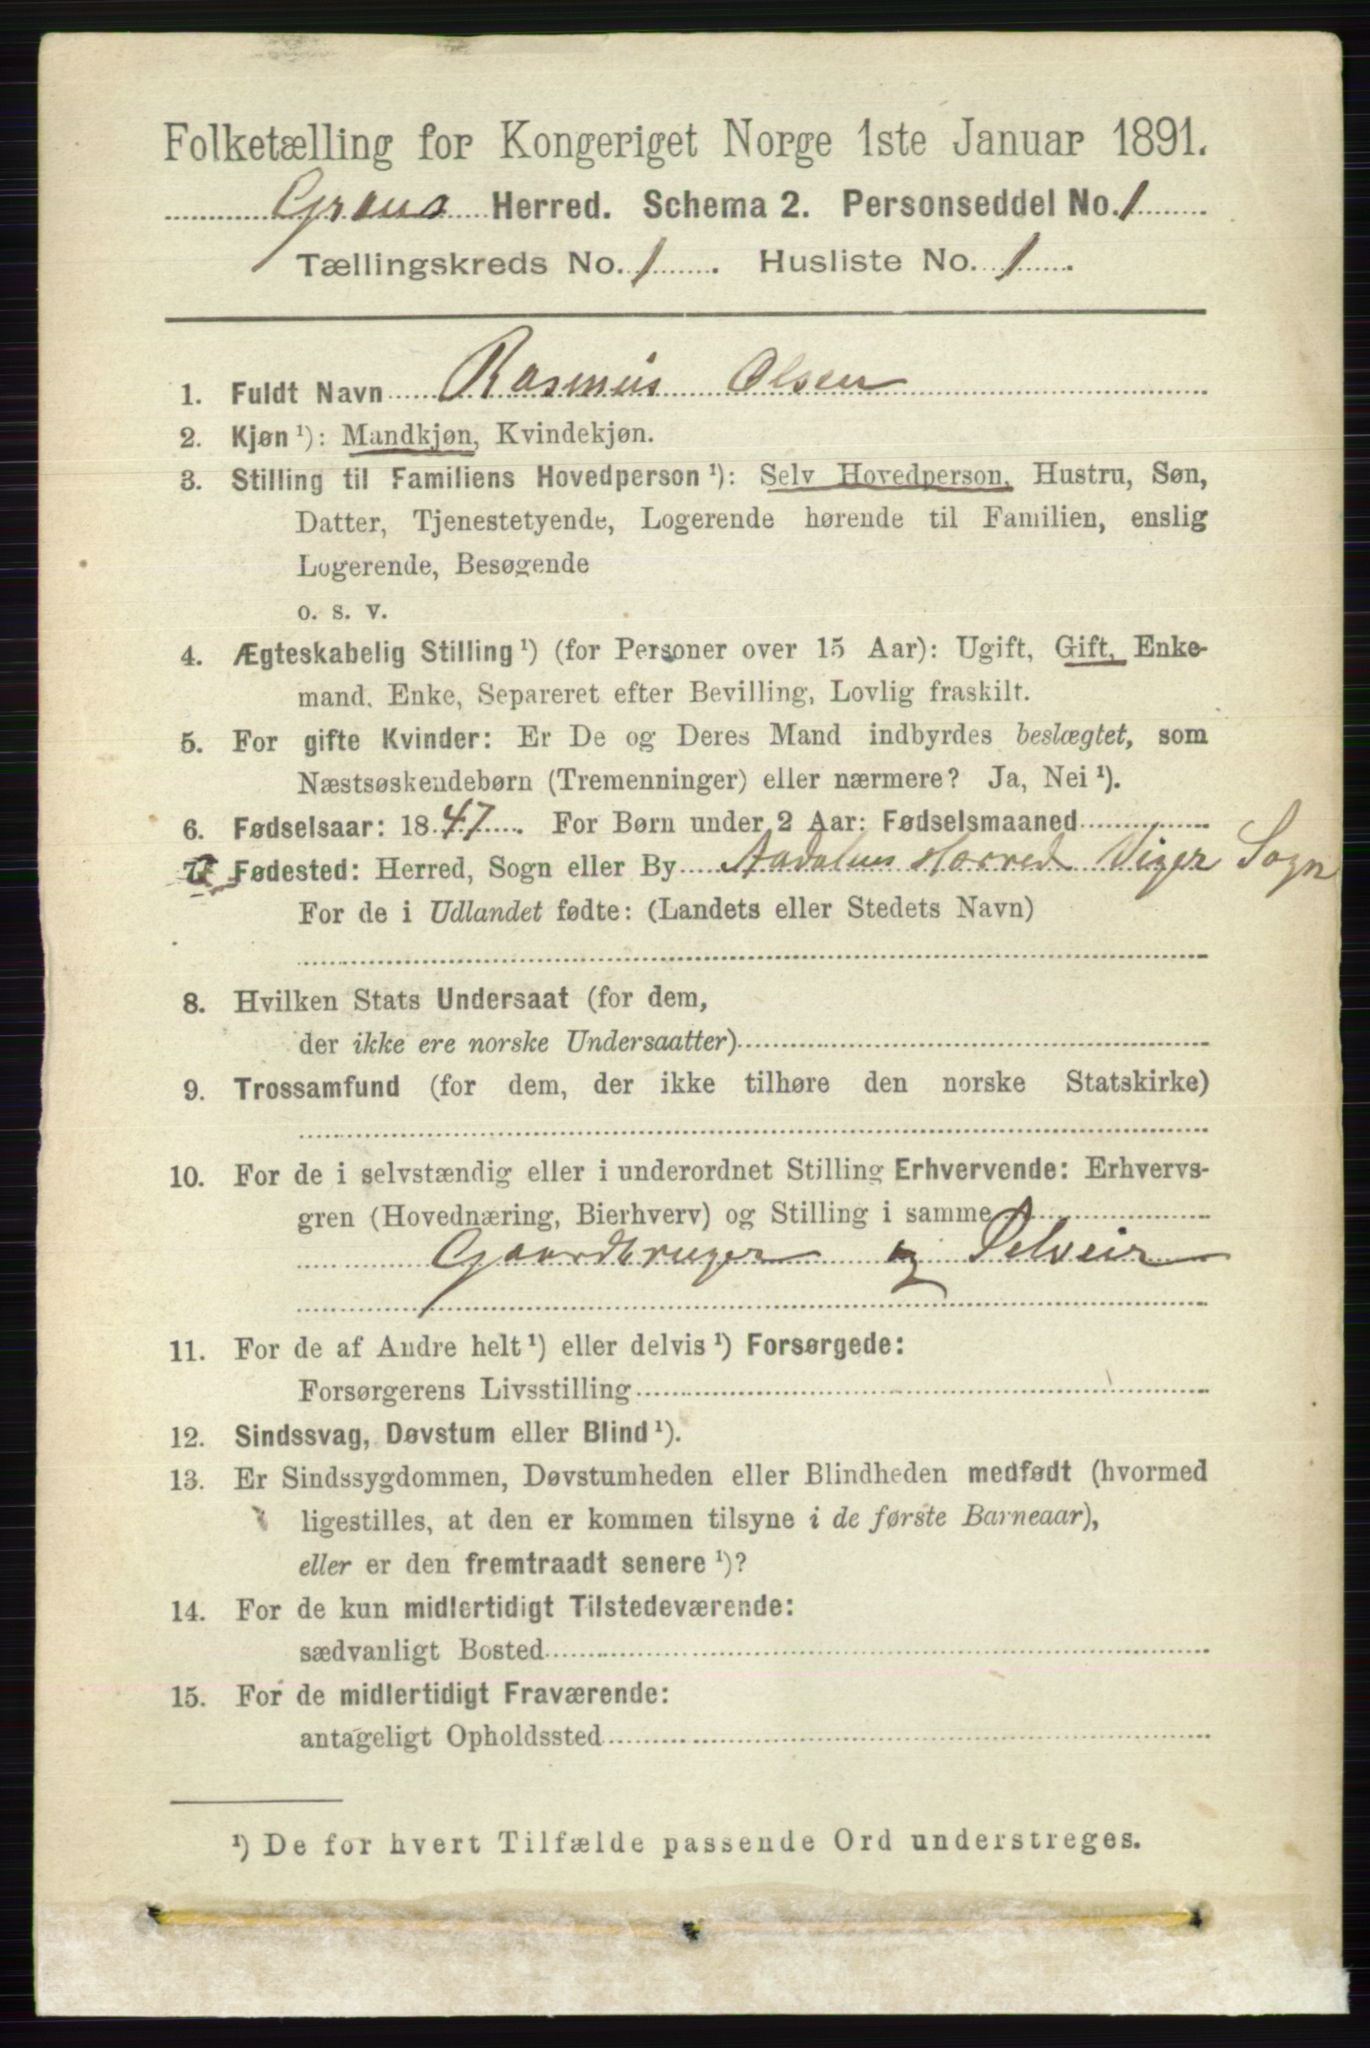 Folketælling for Kongeriget Norge 1ste Januar 1891.
Grans Herred. Schema 2. Personseddel No. 1
Tællingskreds No. 1. Husliste No. 1.
1. Fuldt Navn Rasmus Olsen
2. Kjøn ¹): Mandkjøn, Kvindekjøn.
3. Stilling til Familiens Hovedperson ¹): Selv Hovedperson, Hustru, Søn,
Datter, Tjenestetyende, Logerende hørende til Familien, enslig
Logerende, Besøgende
o. s. v.
4. Ægteskabelig Stilling ¹) (for Personer over 15 Aar): Ugift, Gift, Enke-
mand, Enke, Separeret efter Bevilling, Lovlig fraskilt.
5. For gifte Kvinder: Er De og Deres Mand indbyrdes beslægtet, som
Næstsøskendebørn (Tremenninger) eller nærmere? Ja, Nei ¹).
6. Fødselsaar: 1847. For Børn under 2 Aar: Fødselsmaaned
7. Fødested: Herred, Sogn eller By Aadalens Herred Viger Sogn
For de i Udlandet fødte: (Landets eller Stedets Navn)
8. Hvilken Stats Undersaat (for dem,
der ikke ere norske Undersaatter)
9. Trossamfund (for dem, der ikke tilhøre den norske Statskirke)
10. For de i selvstændig eller i underordnet Stilling Erhvervende: Erhvervs-
gren (Hovednæring, Bierhverv) og Stilling i samme
Gaardbruger og Selveir
11. For de af Andre helt ¹) eller delvis ¹) Forsørgede:
Forsørgerens Livsstilling
12. Sindssvag, Døvstum eller Blind ¹).
13. Er Sindssygdommen, Døvstumheden eller Blindheden medfødt (hvormed
ligestilles, at den er kommen tilsyne i de første Barneaar),
eller er den fremtraadt senere ¹)?
14. For de kun midlertidigt Tilstedeværende:
sædvanligt Bosted
15. For de midlertidigt Fraværende:
antageligt Opholdssted
¹) De for hvert Tilfælde passende Ord understreges.